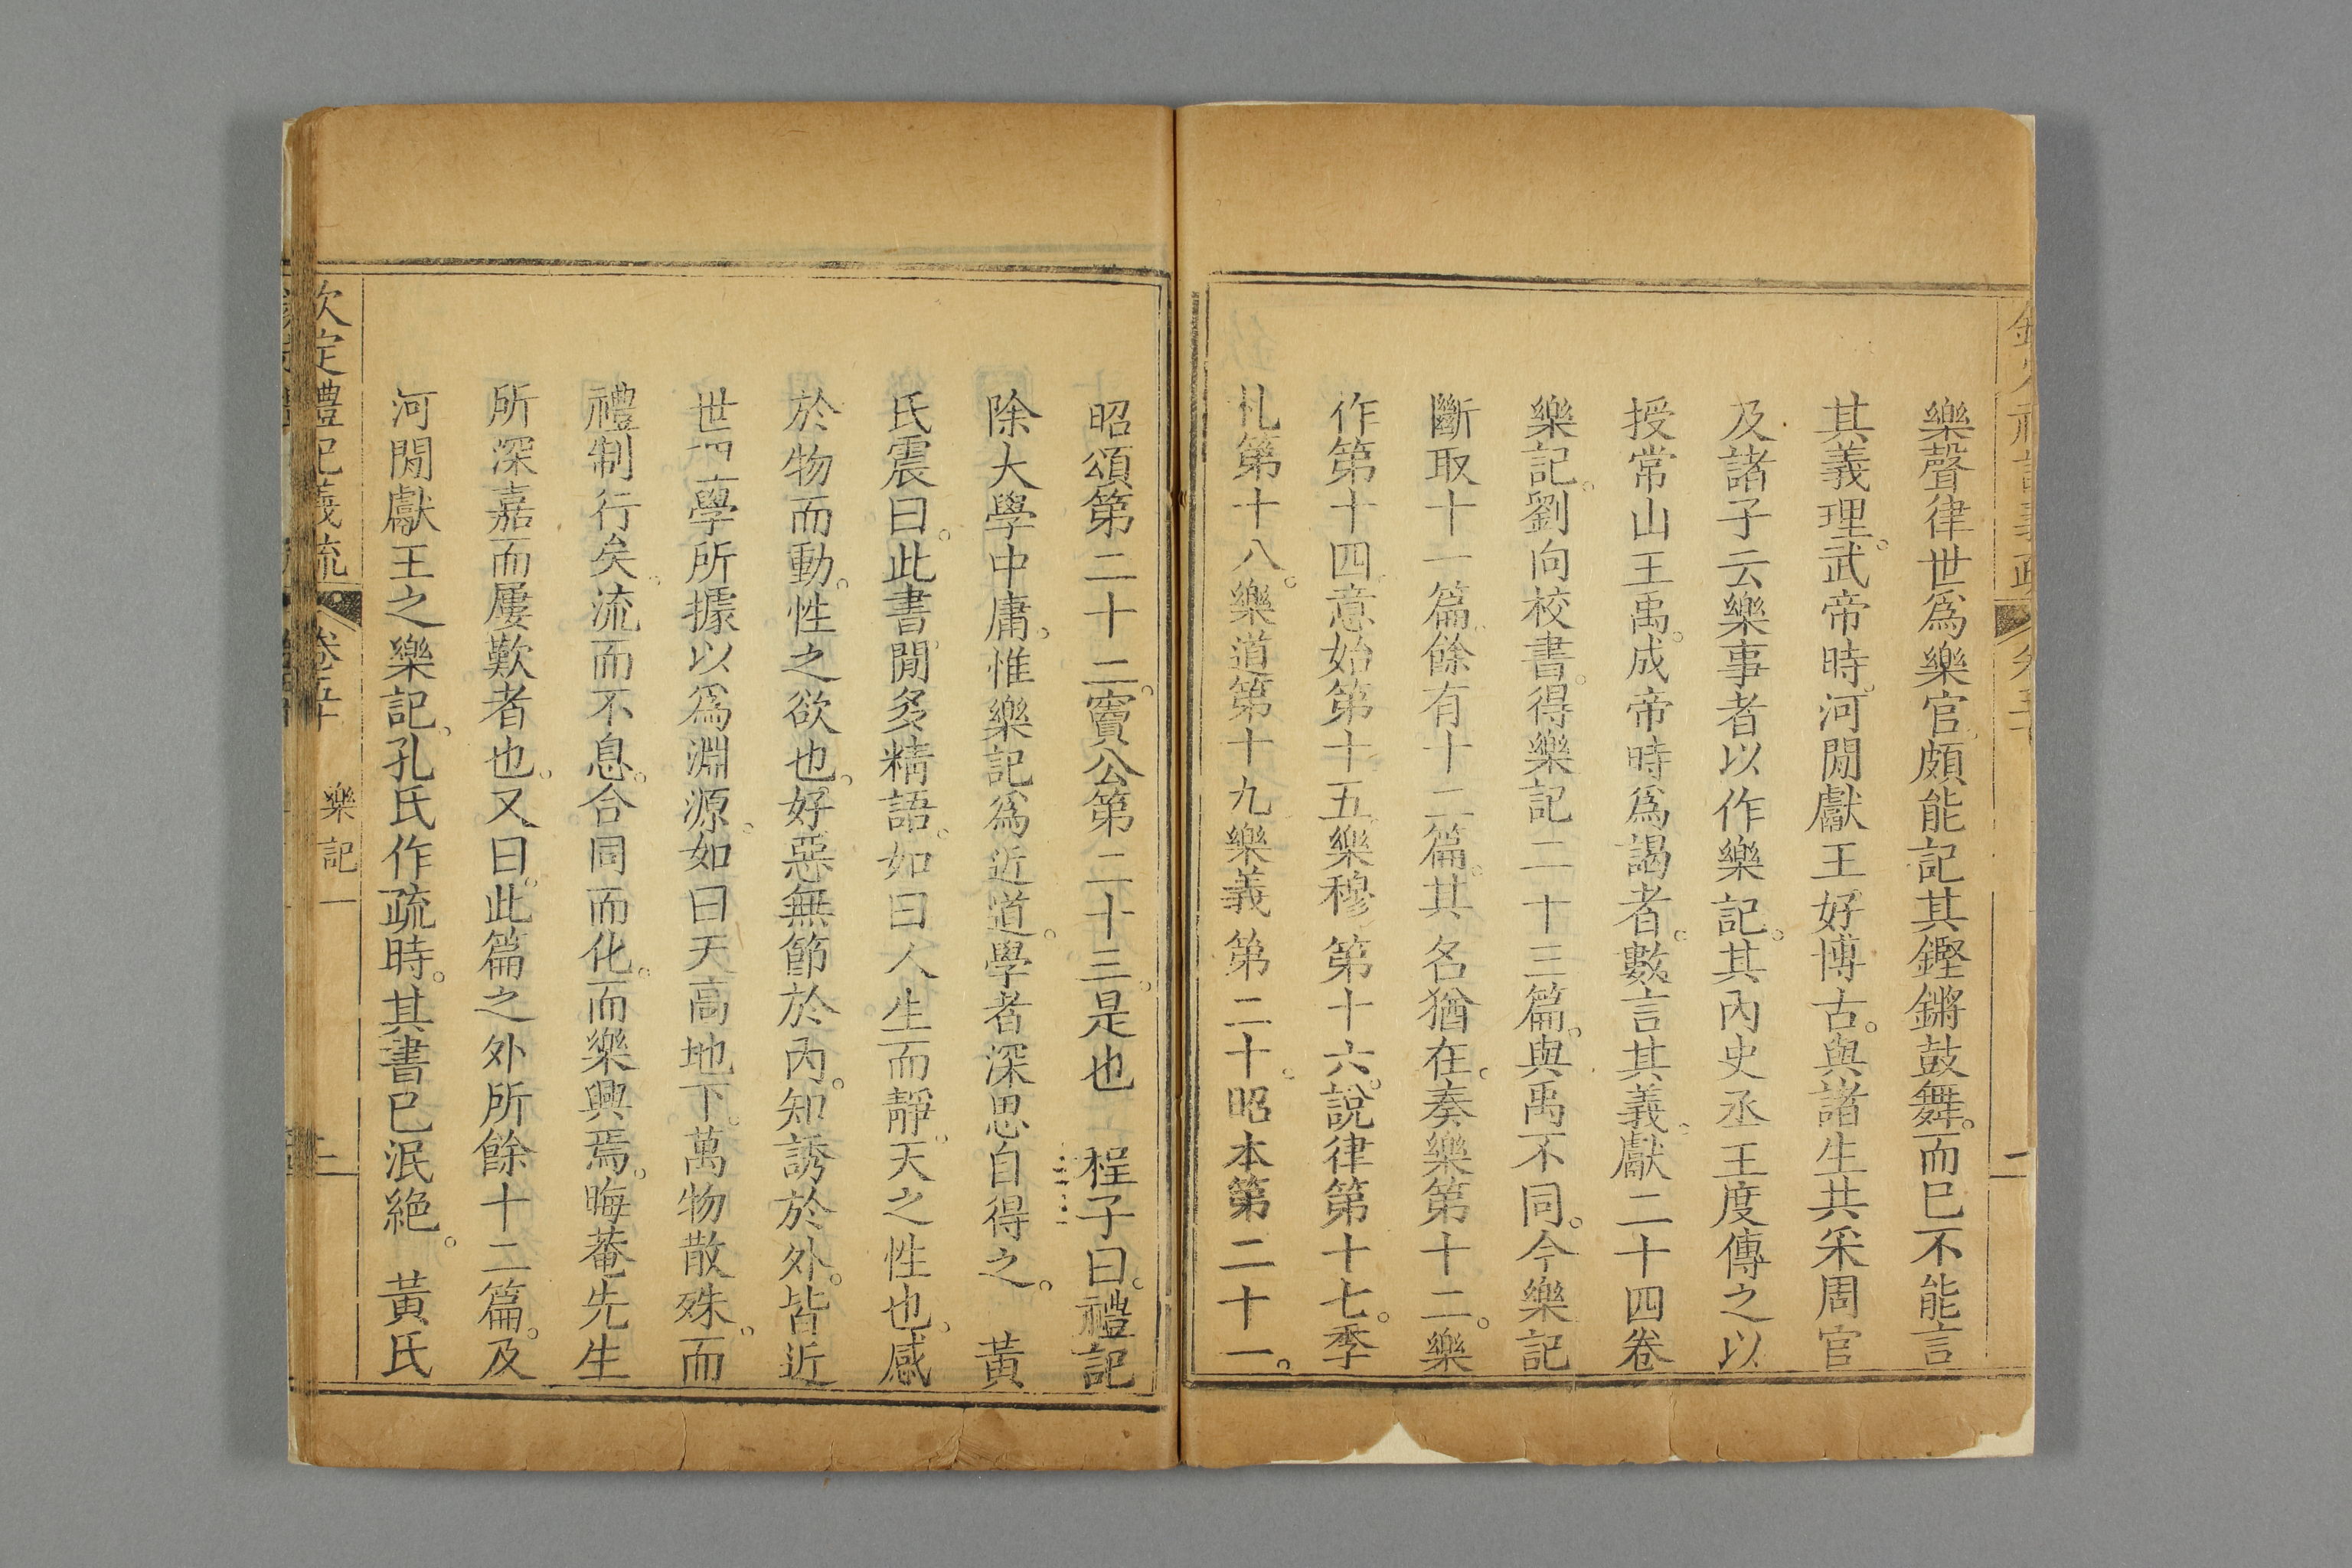 樂聲律世爲樂官頗能記其鏗鏘鼓舞。而已不能言
其義理。武帝時。河閒獻王好博古。與諸生共采周官
及諸子云樂事者以作樂記。其內史丞王度傳之以
授常山王禹。成帝時爲謁者。數言其義。獻二十四卷
樂記。劉向校書。得樂記二十三篇。與禹不同。今樂記
斷取十一篇。餘有十二篇。其名猶在。奏樂第十二。樂
作第十四意始第十五。樂穆第十六。說律第十七。季
札第十八。樂道第十九樂義第二十。昭本第二十一。
昭頌第二十二。竇公第二十三。是也 程子曰。禮記
除大學中庸。惟樂記爲近道。學者深思自得之。 黃
氏震曰。此書閒多精語。如曰人生而靜。天之性也。感
於物而動。性之欲也。好惡無節於內。知誘於外。皆近
世理學所據以爲淵源。如曰天高地下。萬物散殊。而
禮制行矣。流而不息。合同而化。而樂興焉。晦菴先生
所深嘉而屢歎者也。又曰。此篇之外所餘十二篇。及
河閒獻王之樂記。孔氏作疏時。其書已泯絕。 黃氏
欽定禮記義疏 卷五十 樂記一 二